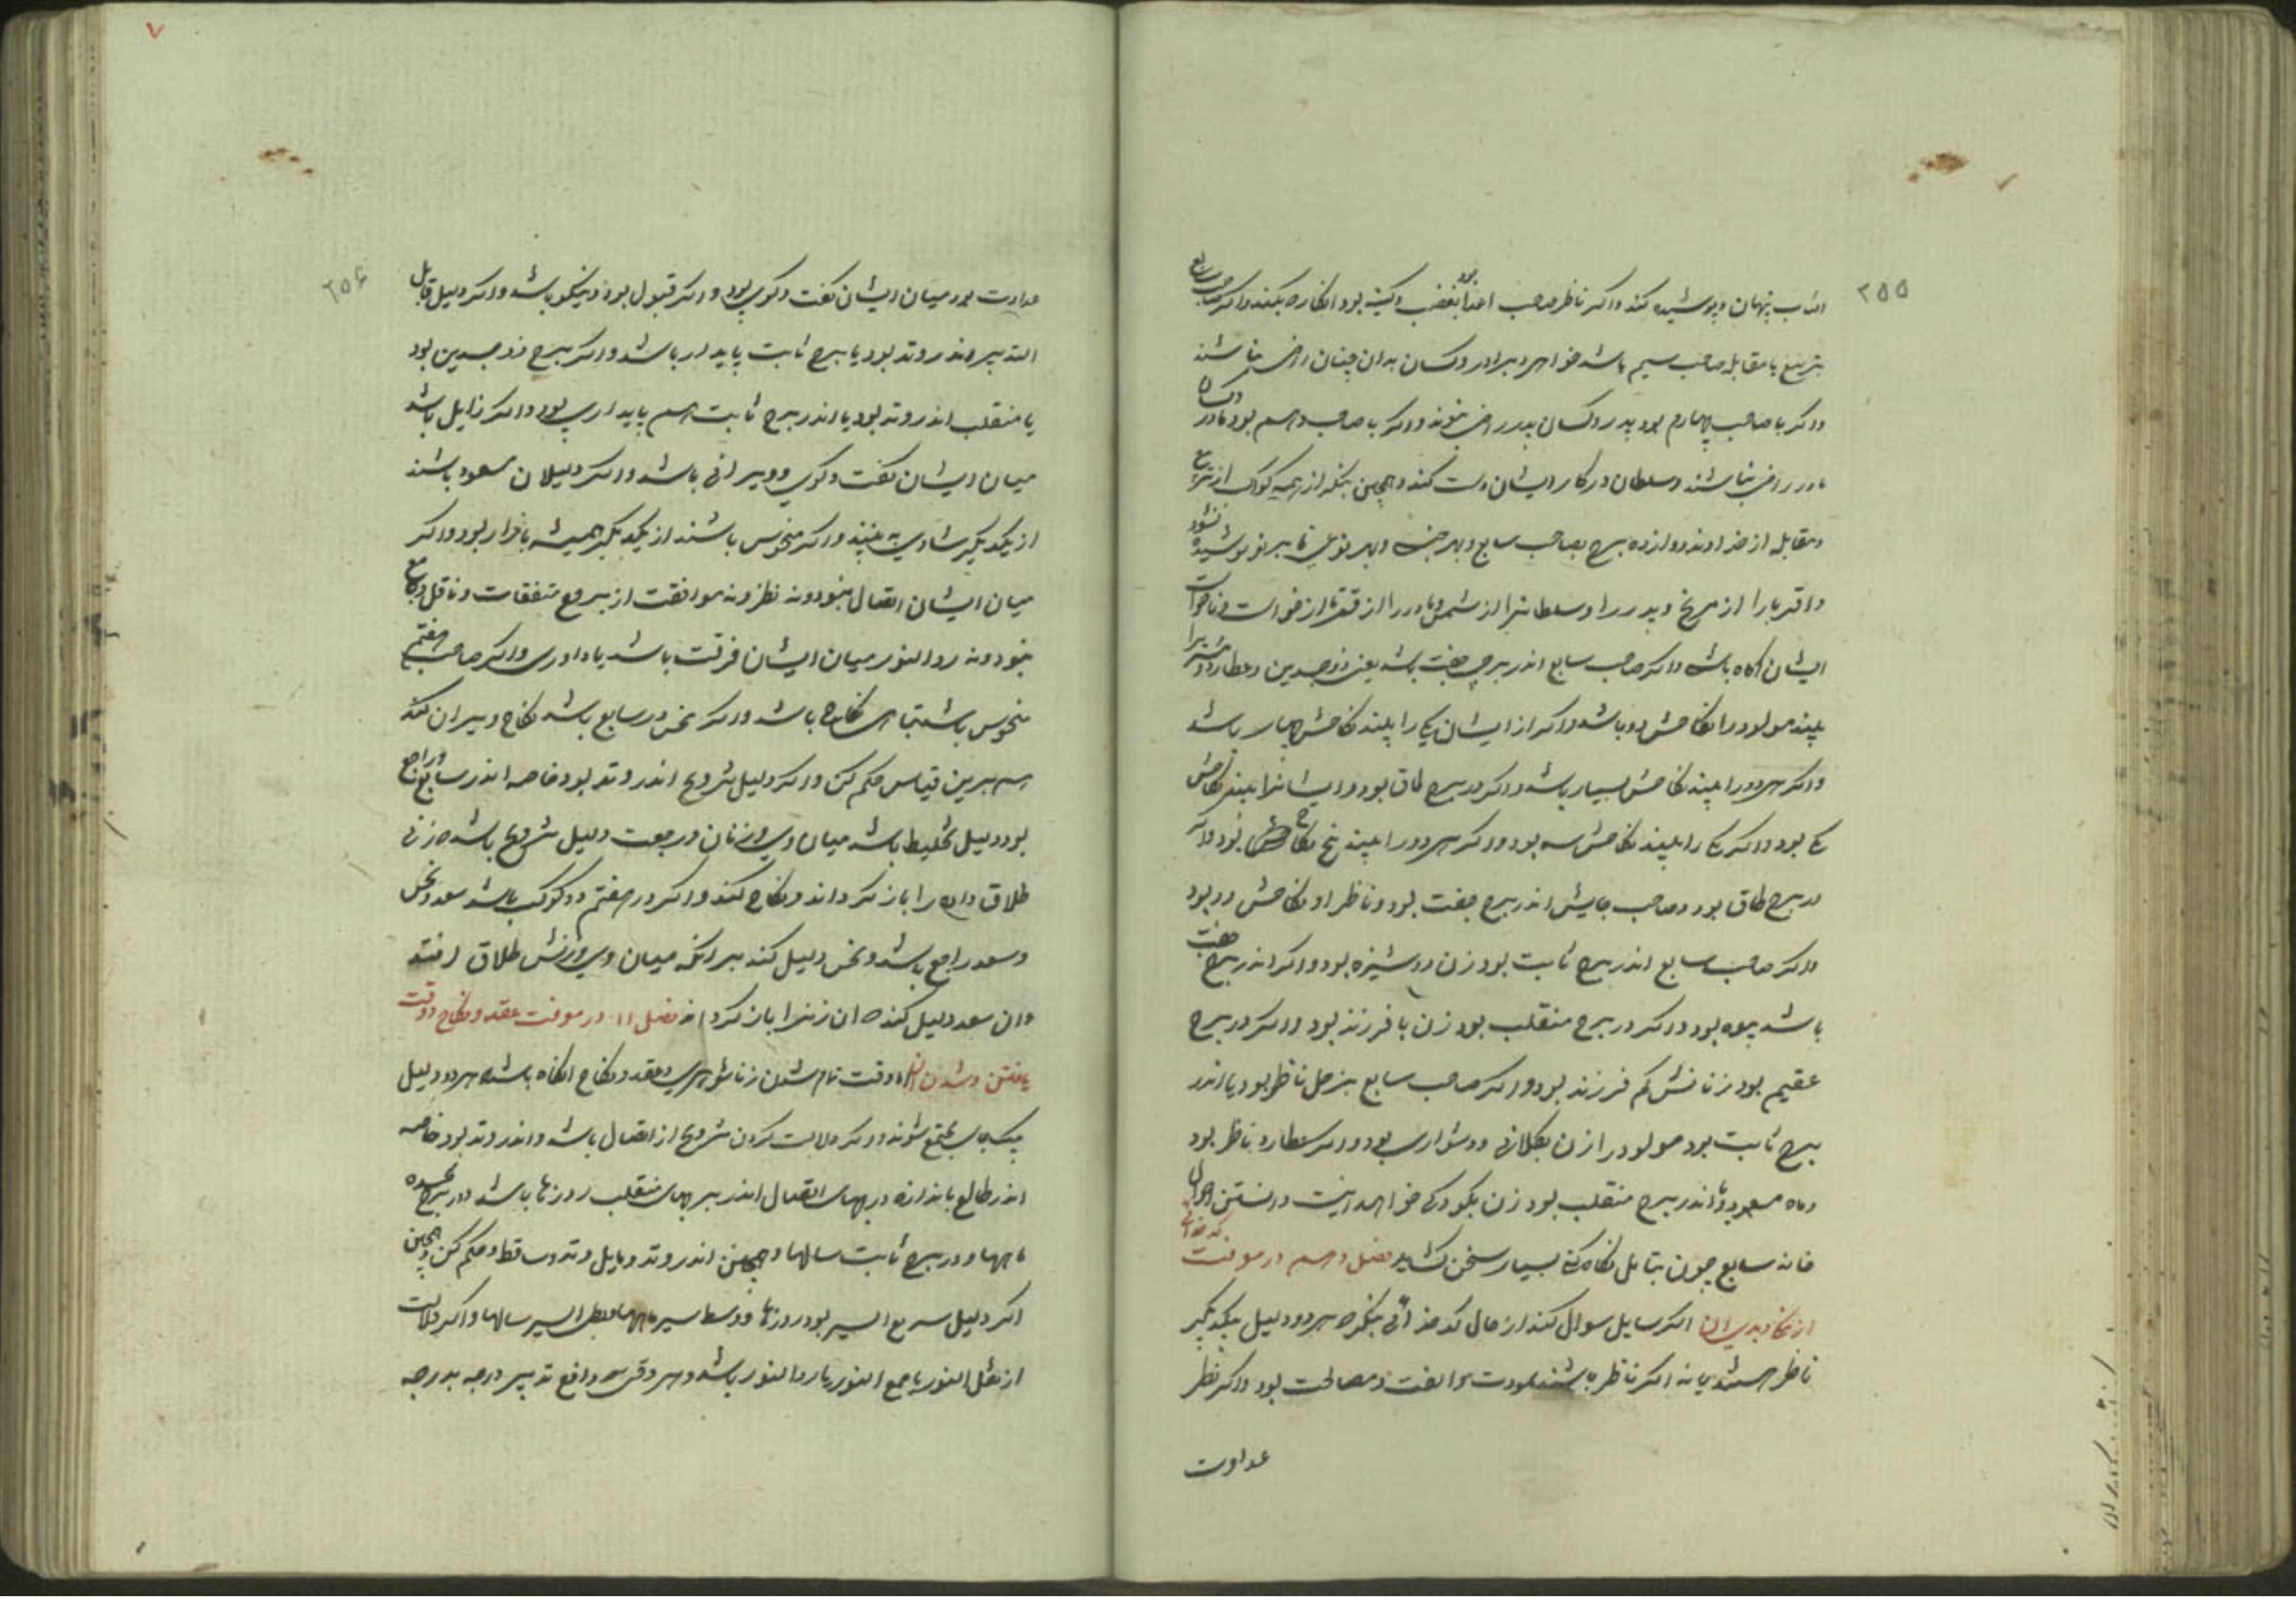 ۲۵۵
اسباب پنهان و پوشیده کند و اکر ناظر صاحب اعدا بود بغضب و کینه بود انکاره بکند و اکر صاحب سابع
بتربیع یا مقابله صاحب سیم باشد خواهر و برادر و کسان بدان چنان راضی نباشند
و اکر با صاحب چهارم بود پدر و کسان پدر راضی نبوند و اکر با صاحب دهم بود مادر و کسان
مادر راضی نباشند و سلطان در کار ایشان کند و همچنین بنکر از همه کواکب از تربیع
و مقابله از خداوند دوازده برج بصاحب سابع و بهر تا بر تو پوشیده نشود
و اقربا را از مریخ و پدر را و سلطانرا از شمس و مادر را از قمر تا از خواست و ناخواست
ایشان اکاه باشی و اکر صاحب سابع اندر برج جفت باشد یعنی ذوجسدین و عطارد و مشتریرا
بیند مولود را نکاحش دو باشد و اکر از ایشان یکی را بیند نکاحش چهار باشد
و اکر هر دو را بیند نکاحش بسیار باشد و اکر در برج طاق بود و ایشانرا نبیند نکاحش
یکی بود و اکر یکی را بیند نکاحش سه بود و اکر هر دو را بیند پنج نکاح بود و اکر
در برج طاق بود و صاحب جایش اندر برج جفت بود و ناظر او نکاحش دو بود
و اکر صاحب سابع اندر برج ثابت بود زن دوشیزه بود و اکر اندر برج جفت
باشد بیوه بود و اکر در برج منقلب بود زن با فرزند بود و اکر در برج
عقیم بود زنانش کم فرزند بود و اکر صاحب سابع بزحل ناظر بود یا اندر
برج ثابت بود مولود را زن بکلانی و دشواری بود و اکر بعطارد ناظر بود
و ماه مسعود و اندر برج منقلب بود زن بکودکی خواهد دانستن احوال
خانه سابع چون بتامل نکاه کنی بسیار سخن کشاید فصل دهم در معرفت کدخدائی
از اکر سایل سوال کند از حال کدخدائی بنکر که هر دو دلیل بیکدیکر
ناظر هستند یا نه اکر ناظر باشند بمودت موافقت و مصالحت بود و اکر نظر
عداوت
۲۵۶
عداوت بود میان ایشان کفت و کوی بود و اکر قبول بود نیکو باشد و اکر دلیل قابل
التدبیر اندر وتد بود یا ببرج ثابت پایدار باشد و اکر ببرج ذوجسدین بود
یا منقلب اندر وتد بود یا اندر برج ثابت هم پایداری بود و اکر زایل باشد
میان ایشان کفت و کوی و ویرانی باشد و اکر دلیلان مسعود باشند
از یکدیکر شادی بینند و اکر منحوس باشند از یکدیکر همیشه بازار بود و اکر
میان ایشان اتصال نبود و نه نظر و نه موافقت از بروج متفقات و ناقل و جامع
نبود و نه رد النور میان ایشان فرقت باشد یا داوری و اکر صاحب هفتم
منحوس باشد تباهی نکاح باشد و اکر نحس در سابع باشد نکاح ویران کند
هم برین قیاس حکم کن و اکر دلیل تزویج اندر وتد بود خاصه اندر سابع و راجع
بود دلیل تخلیط باشد میان وی و زنان و رجعت دلیل تزویج باشد که زنی
طلاق داده را باز کرداند و نکاح کند و اکر در هفتم دو کوکب باشد سعد و نحس
و سعد راجع باشد و نحس دلیل کند بر انکه میان وی و زنش طلاق افتد
و ان سعد دلیل کند که ان زنرا باز کرداند فصل ۱۱ در معرفت عقد و نکاح و وقت
یافتن و شدن اما وقت تمام شدن زناشوهری و عقد و نکاح انکاه باشد که هر دو دلیل
بیک جای مجتمع شوند و اکر دلالت کردن تزویج از اتصال باشد و اندر وتد بود خاصه
اندر طالع باندازه درجهای اتصال اندر برجهای منقلب روزها باشد و در برج مجسده
ماهها و در برج ثابت سالها و همچنین اندر وتد و مایل وتد و ساقط و حکم کن و همچنین
اکر دلیل سریع السیر بود روزها و وسط سیر ماهها و بطی السیر سالها و اکر دلالت
از نقل النور یا جمع النور یا رد النور باشد و هر وقتی که دافع تدبیر درجه بدرجه